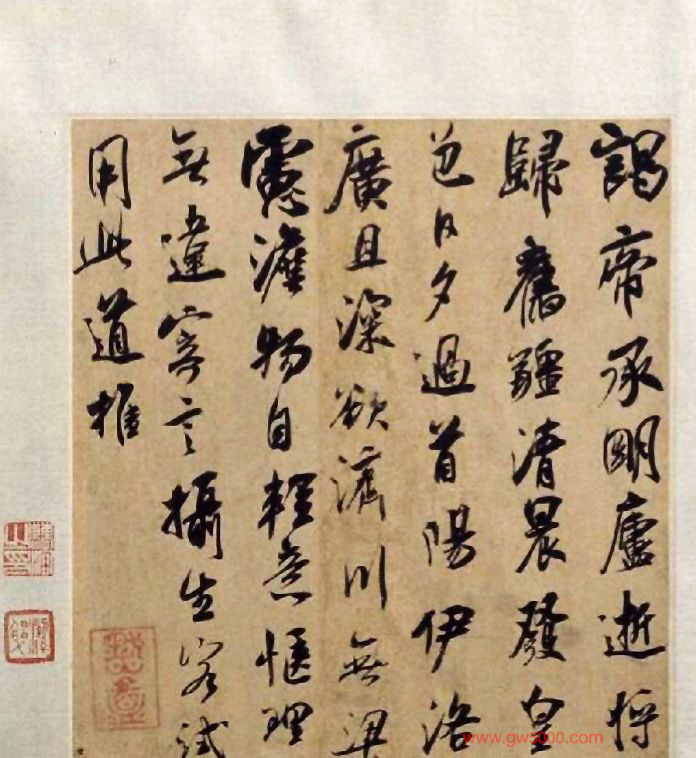 謁帝承明廬逝將
歸舊疆清晨發皇
邑日夕過首陽伊洛
廣且深欲濟川無梁
慮澹物自輕意愜理
無違寄言攝生客試
用此道推
www.gw5000.com